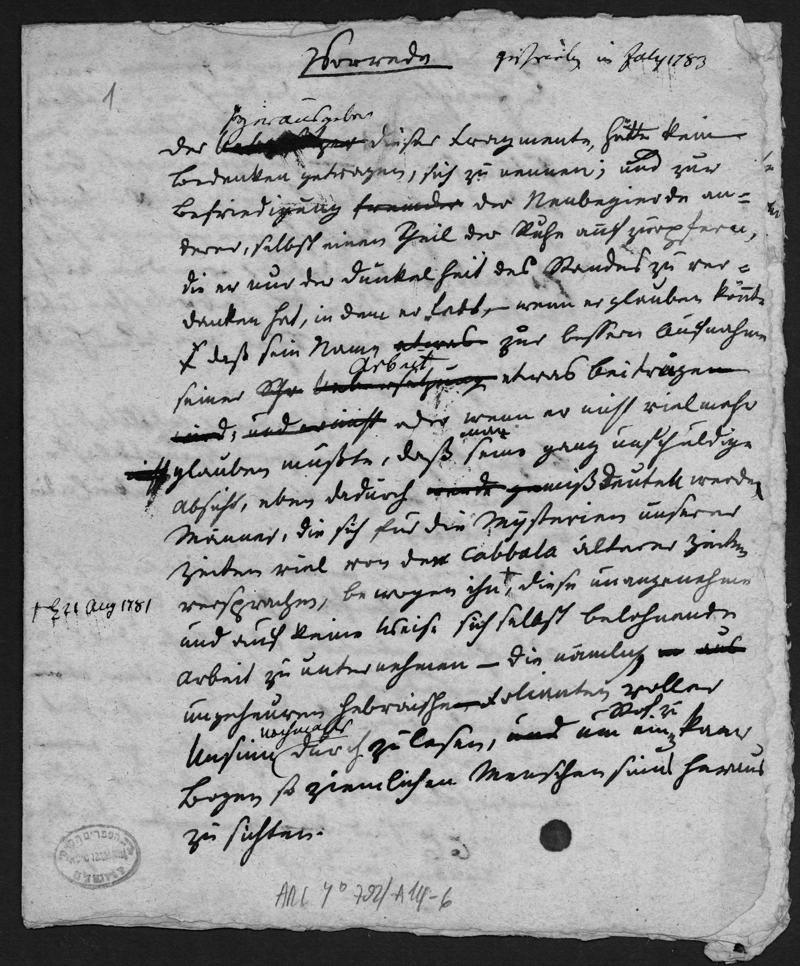 Vorrede geschrieben in July 1783
1
Herausgeber
Der dieser Fragmente, hätte kein
Bedenken getragen, sich zu nennen; und zur
Befriedigung fremder der Neubegierde an=
derer, selbst einen Theil der Ruhe aufzuopfern,
die er nur der Dunkelheit des Standes zu ver=
danken hat, in dem er lebt, – wenn er glauben könnte
daß sein Name etwas zur bessern Aufnahme
Arbeit
seiner Uebersetzung etwas beitragen
wird, und er nicht oder wenn er nicht vielmehr
glauben müßte, daß seine ganz unschuldige
Absicht, eben dadurch mißdeutet werden
Männer, die sich für die Mysterien unserer
Zeiten viel von der Cabbala älterer Zeiten
versprachen, bewogen ihn †, diese unangenehme
† 21 Aug 1781
und auf keine Weise sich selbst belohnende
Arbeit zu unternehmen – die nämlich aus
ungeheuren hebräischen Folianten voller
nochmals
Unsinn durchzulesen, und um ein Paar
Bogen so ziemlichen Menschensinns heraus
zu sichten.
ARC 4° 792/A14-6